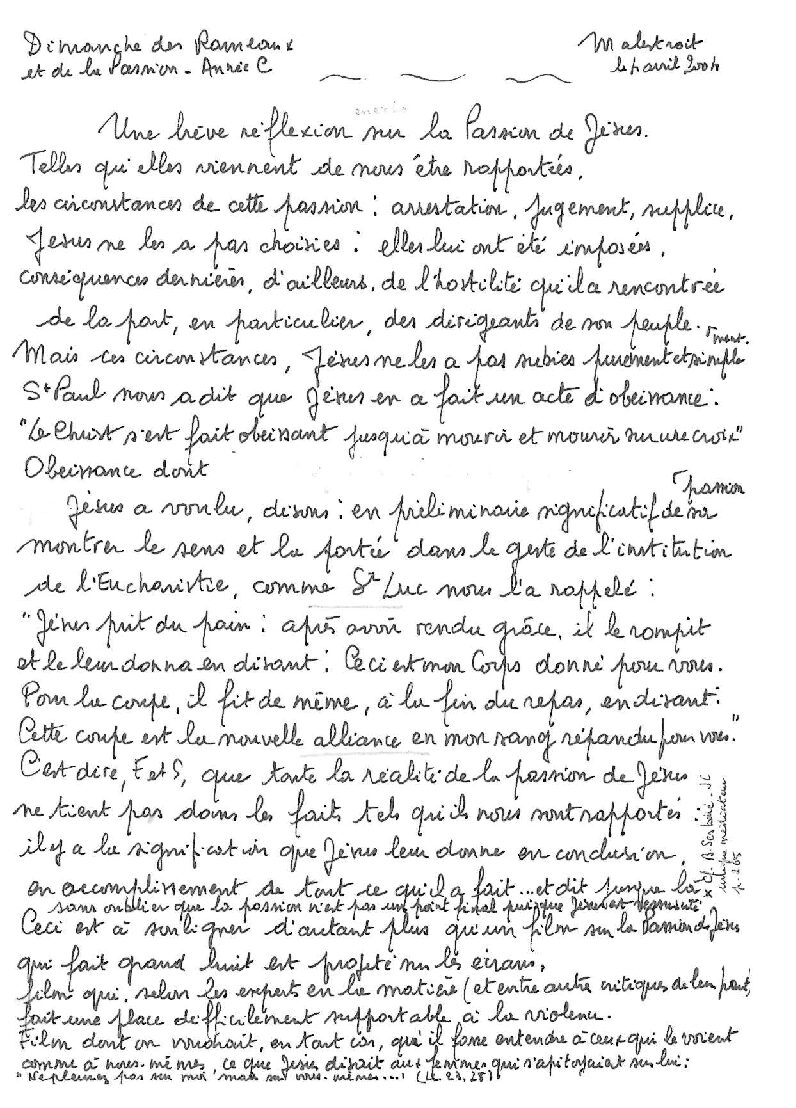 Dimanche des Rameaux
et de la Passion - Année C
Malestroit
le 4 avril 2004
Une brève réflexion sur la Passion de Jésus.
Telles qu'elles viennent de nous être rapportées,
les circonstances de cette passion : arrestation, jugement, supplice,
Jésus ne les a pas choisies : elles lui ont été imposées,
conséquences dernières, d'ailleurs, de l'hostilité qu'il a rencontrée
de la part, en particulier, des dirigeants de son peuple.
Mais ces circonstances, Jésus ne les a pas subies purement et simplement.
St Paul nous a dit que Jésus en a fait un acte d'obéissance :
"Le Christ s'est fait obéissant jusqu'à mourir et mourir sur une croix"
Obéissance dont
Jésus a voulu, disons : en préliminaire significatif de sa passion
montrer le sens et la portée dans le geste de l'institution
de l'Eucharistie, comme St Luc nous l'a rappelé :
"Jésus prit du pain : après avoir rendu grâce, il le rompit
et le leur donna en disant : Ceci est mon Corps donné pour vous.
Pour la coupe, il fit de même, à la fin du repas, en disant :
Cette coupe est la nouvelle alliance en mon sang répandu pour vous."
C'est dire, F et S, que toute la réalité de la passion de Jésus
ne tient pas dans les faits tels qu'ils nous sont rapportés :
il y a la signification que Jésus leur donne en conclusion,
en accomplissement de tout ce qu'il a fait... et dit jusque là
x Cf. B. Sesboüé. JC
unique médiateur
sans oublier que la passion n'est pas un point final puisque Jésus est ressuscité
Ceci est à souligner d'autant plus qu'un film sur la Passion de Jésus
qui fait grand bruit est projeté sur les écrans,
film qui, selon les experts en la matière (et entre autre critiques de leur part)
fait une place difficilement supportable à la violence.
Film dont on voudrait, en tout cas, qu'il fasse entendre à ceux qui le voient
comme à nous-mêmes, ce que Jésus disait aux femmes qui s'apitoyaient sur lui :
"Ne pleurez pas sur moi mais sur vous-mêmes...! (Lc 23, 28)